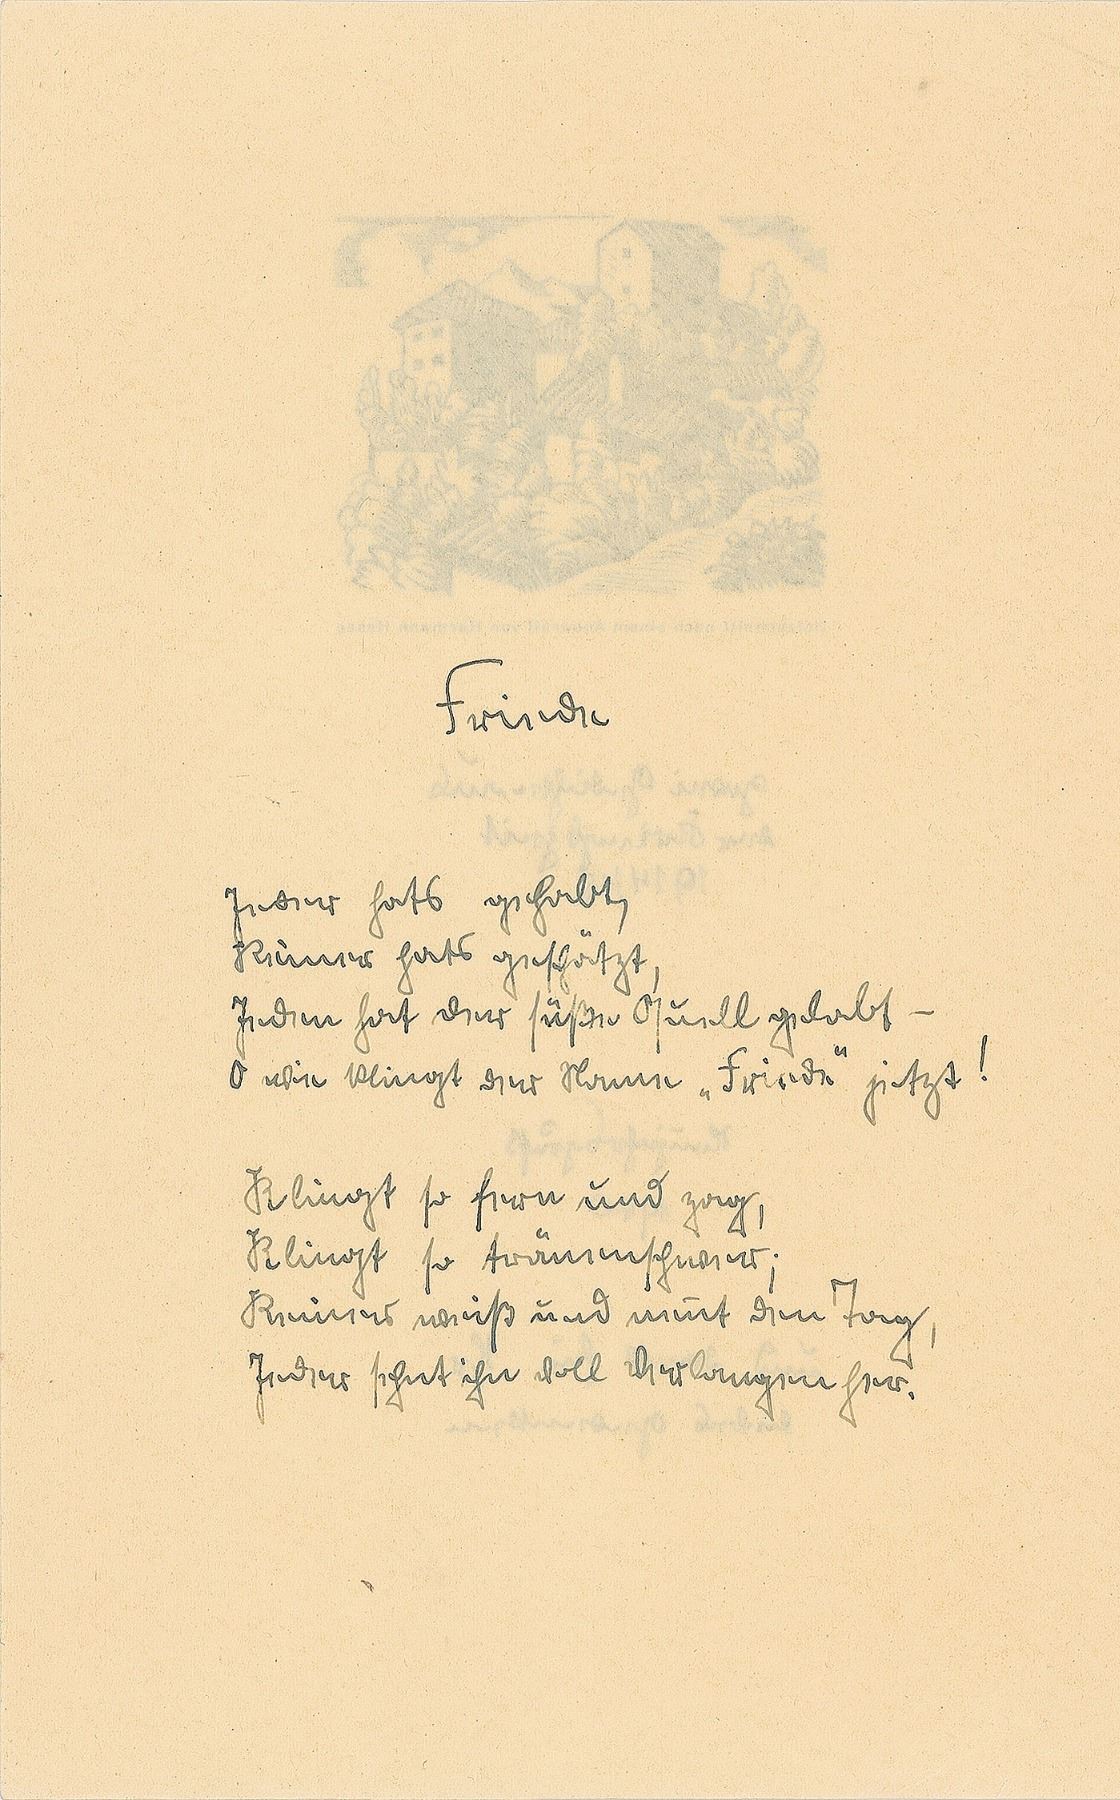 Friede
Jeder hats gehabt,
Keiner hats geschätzt,
Jeden hat der süße Quell gelabt –
O wie klingt der Name „Friede“ jetzt!
Klingt so fern und zag,
Klingt so tränenschwer;
Keiner weiß und nennt den Tag,
Jeder sehnt ihn voll Verlangen her.